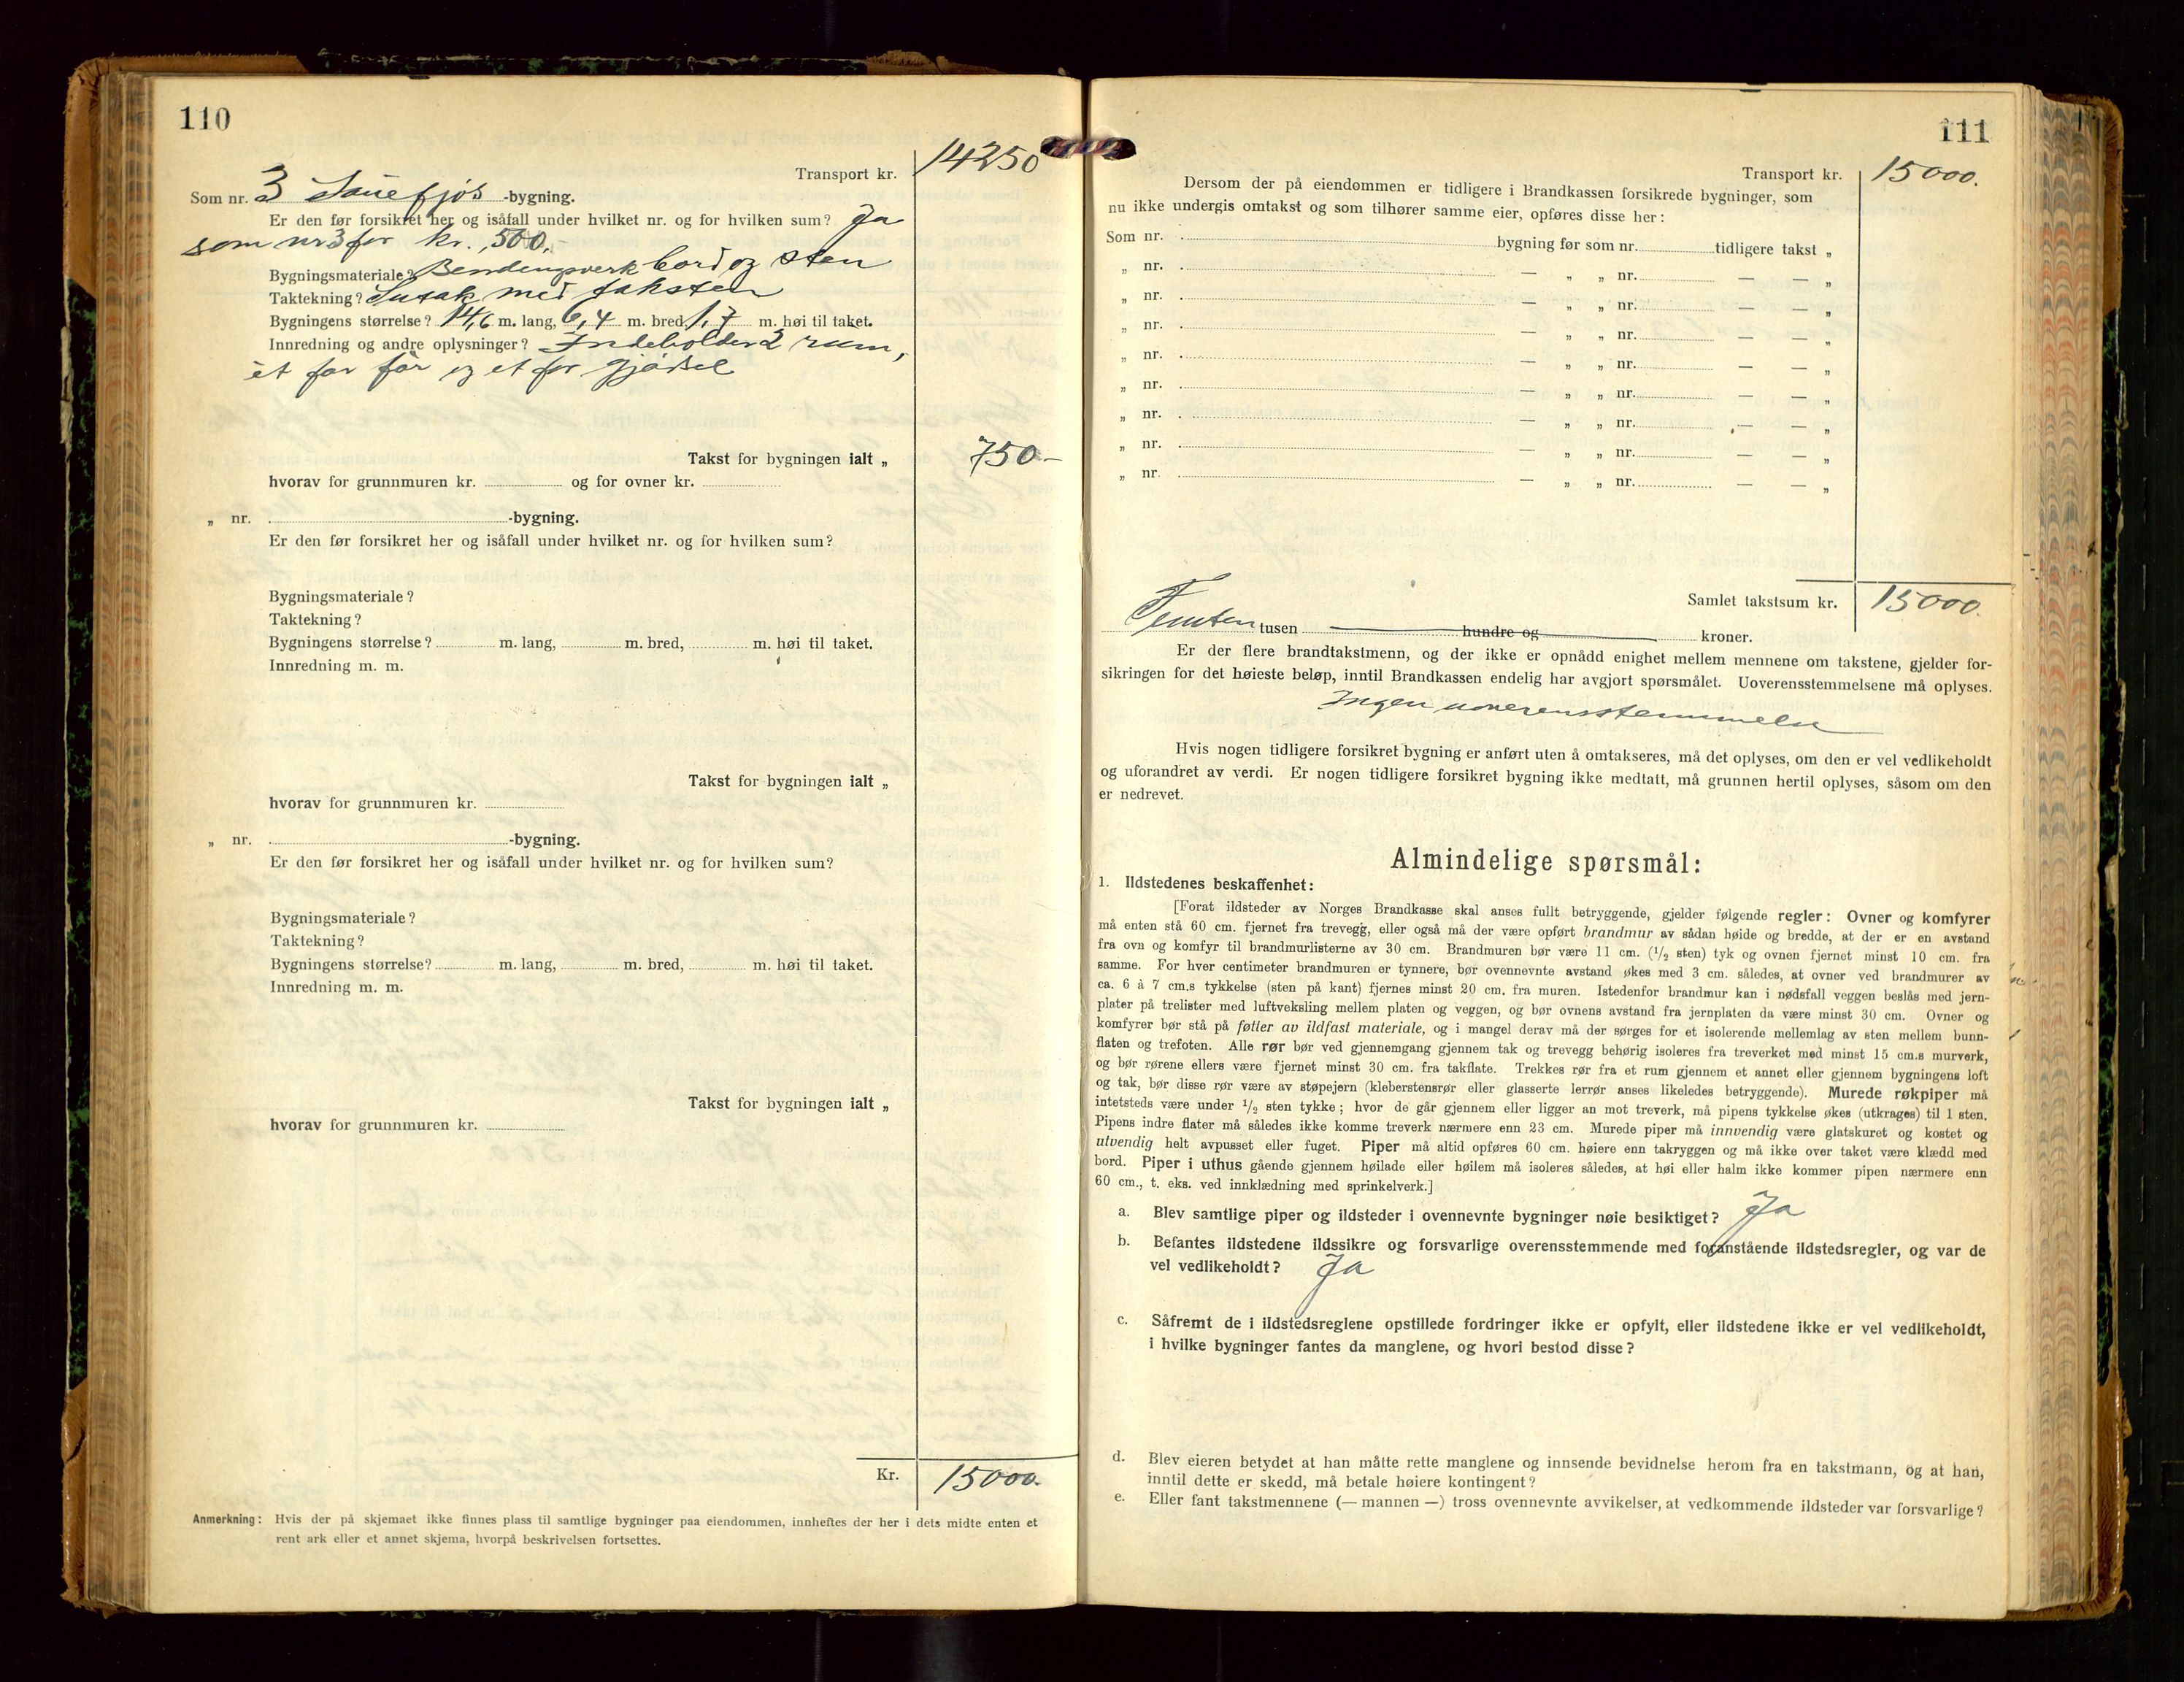 110
Transport kr. 14250
Som nr. 3 Sauefjøs -bygning.
Er den før forsikret her og isåfall under hvilket nr. og for hvilken sum? Ja
som nr 3 for kr. 500.-
Bygningsmateriale? Bendingsverk bord og sten
Taktekning? Sutak med taksten
Bygningens størrelse? 14,6 m. lang, 6,4 m. bred 1,7 m. høi til taket.
Innredning og andre oplysninger? Indeholder 2 rum,
et for får og et for gjødsel
Takst for bygningen ialt „ 750-
hvorav for grunnmuren kr. og for ovner kr.
„ nr. -bygning.
Er den før forsikret her og isåfall under hvilket nr. og for hvilken sum?
Bygningsmateriale?
Taktekning?
Bygningens størrelse? m. lang, m. bred, m. høi til taket.
Innredning m. m.
Takst for bygningen ialt „
hvorav for grunnmuren kr.
„ nr. -bygning.
Er den før forsikret her og isåfall under hvilket nr. og for hvilken sum?
Bygningsmateriale?
Taktekning?
Bygningens størrelse? m. lang, m. bred, m. høi til taket.
Innredning m. m.
Takst for bygningen ialt „
hvorav for grunnmuren kr.
Kr. 15000.
Anmerkning: Hvis der på skjemaet ikke finnes plass til samtlige bygninger paa eiendommen, innheftes der her i dets midte enten et
rent ark eller et annet skjema, hvorpå beskrivelsen fortsettes.
111
Transport kr. 15000.
Dersom der på eiendommen er tidligere i Brandkassen forsikrede bygninger, som
nu ikke undergis omtakst og som tilhører samme eier, opføres disse her:
Som nr. bygning før som nr. tidligere takst „
„ nr. — „ „ nr. — — „
„ nr. — „ „ nr. — — „
„ nr. — „ „ nr. — — „
„ nr. — „ „ nr. — — „
„ nr. — „ „ nr. — — „
„ nr. — „ „ nr. — — „
„ nr. — „ „ nr. — — „
„ nr. — „ „ nr. — — „
Samlet takstsum kr. 15000
Femten tusen hundre og kroner.
Er der flere brandtakstmenn, og der ikke er opnådd enighet mellem mennene om takstene, gjelder for-
sikringen for det høieste beløp, inntil Brandkassen endelig har avgjort spørsmålet. Uoverensstemmelsene må oplyses.
Ingen uoverensstemmelse
Hvis nogen tidligere forsikret bygning er anført uten å omtakseres, må det oplyses, om den er vel vedlikeholdt
og uforandret av verdi. Er nogen tidligere forsikret bygning ikke medtatt, må grunnen hertil oplyses, såsom om den
er nedrevet.
Almindelige spørsmål:
1. Ildstedenes beskaffenhet:
[Forat ildsteder av Norges Brandkasse skal anses fullt betryggende, gjelder følgende regler: Ovner og komfyrer
må enten stå 60 cm. fjernet fra trevegg, eller også må der være opført brandmur av sådan høide og bredde, at der er en avstand
fra ovn og komfyr til brandmurlisterne av 30 cm. Brandmuren bør være 11 cm. (1/2 sten) tyk og ovnen fjernet minst 10 cm. fra
samme. For hver centimeter brandmuren er tynnere, bør ovennevnte avstand økes med 3 cm. således, at ovner ved brandmurer av
ca. 6 à 7 cm.s tykkelse (sten på kant) fjernes minst 20 cm. fra muren. Istedenfor brandmur kan i nødsfall veggen beslås med jern-
plater på trelister med luftveksling mellem platen og veggen, og bør ovnens avstand fra jernplaten da være minst 30 cm. Ovner og
komfyrer bør stå på føtter av ildfast materiale, og i mangel derav må der sørges for et isolerende mellemlag av sten mellem bunn-
flaten og trefoten. Alle rør bør ved gjennemgang gjennem tak og trevegg behørig isoleres fra treverket med minst 15 cm.s murverk,
og bør rørene ellers være fjernet minst 30 cm. fra takflate. Trekkes rør fra et rum gjennem et annet eller gjennem bygningens loft
og tak, bør disse rør være av støpejern (kleberstensrør eller glasserte lerrør anses likeledes betryggende). Murede røkpiper må
intetsteds være under 1/2 sten tykke; hvor de går gjennem eller ligger an mot treverk, må pipens tykkelse økes (utkrages) til 1 sten.
Pipens indre flater må således ikke komme treverk nærmere enn 23 cm. Murede piper må innvendig være glatskuret og kostet og
utvendig helt avpusset eller fuget. Piper må altid opføres 60 cm. høiere enn takryggen og må ikke over taket være klædd med
bord. Piper i uthus gående gjennem høilade eller høilem må isoleres således, at høi eller halm ikke kommer pipen nærmere enn
60 cm., t. eks. ved innklædning med sprinkelverk.]
a. Blev samtlige piper og ildsteder i ovennevnte bygninger nøie besiktiget? Ja
b. Befantes ildstedene ildssikre og forsvarlige overensstemmende med foranstående ildstedsregler, og var de
vel vedlikeholdt? Ja
c. Såfremt de i ildstedsreglene opstillede fordringer ikke er opfylt, eller ildstedene ikke er vel vedlikeholdt,
i hvilke bygninger fantes da manglene, og hvori bestod disse?
d. Blev eieren betydet at han måtte rette manglene og innsende bevidnelse herom fra en takstmann, og at han,
inntil dette er skedd, må betale høiere kontingent?
e. Eller fant takstmennene (— mannen —) tross ovennevnte avvikelser, at vedkommende ildsteder var forsvarlige?